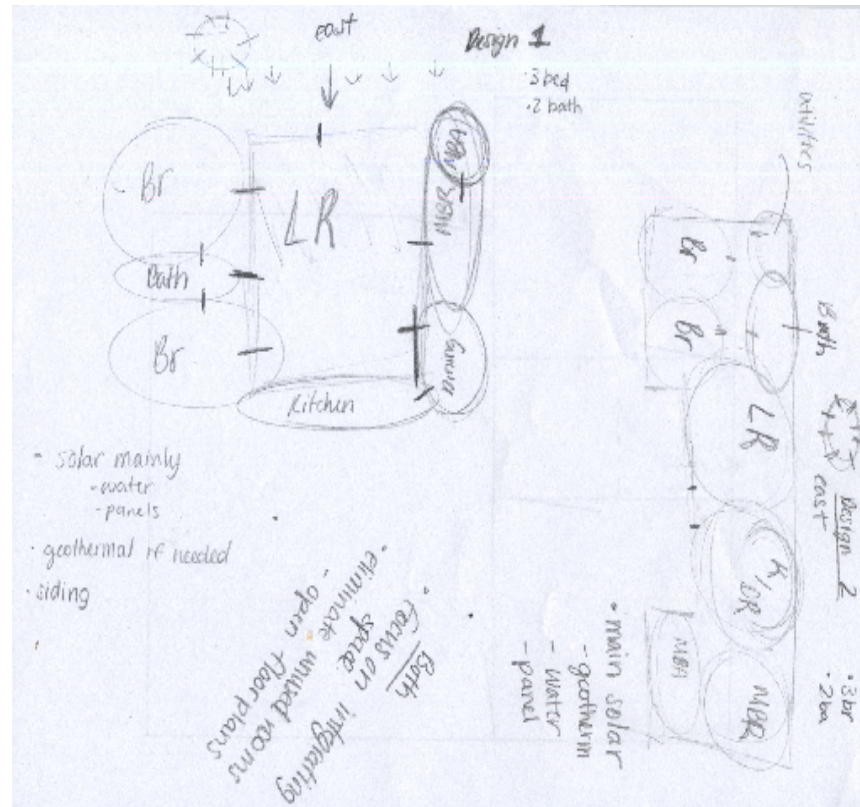 east
Design 1
3 bed
• 2 bath
Br
LR
MBA
MBR
Bath
Br
Kitchen
• solar mainly
- water
- panels
• geothermal if needed
• siding
Both
• Focus on integrating
space
• eliminate unused rooms
- open floor plans
utilities
Br
Br
Bath
LR
east
Design 2
• 3 br
• 2 ba
K/DR
MBA
MBR
• main solar
- geotherm
- water
- panel